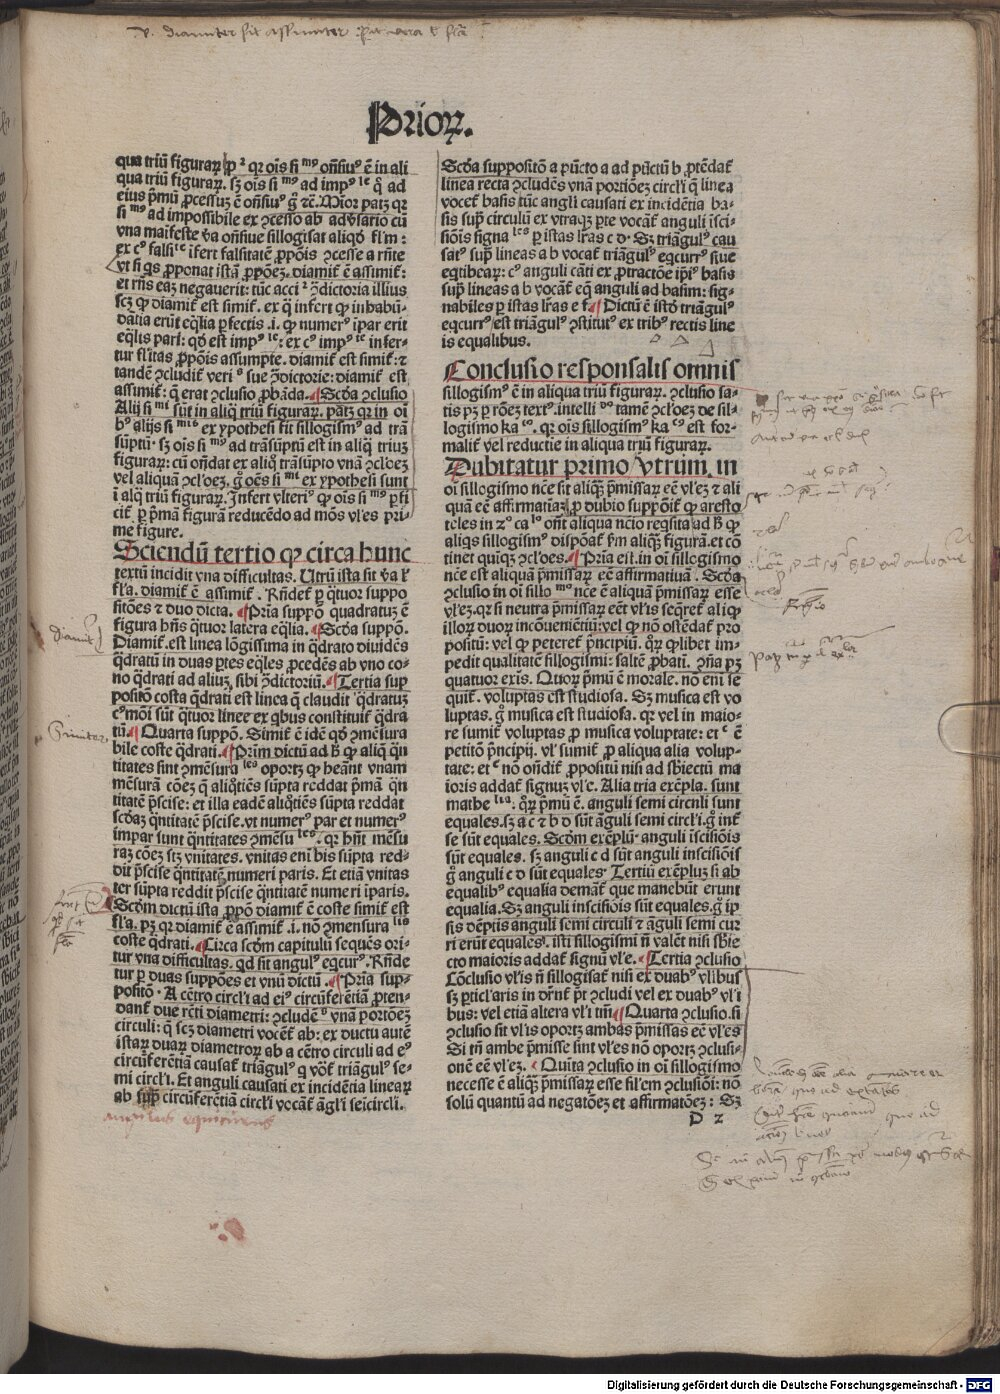 Prioꝝ.
qua triū figuraꝝ ꝑ ² qꝛ oīs ſi ᵐ⁹ oñſiu⁹ ē in ali
qua triū figuraꝝ. ſꝫ oīs ſi ᵐ⁹ ad imp⁹ ˡᵉ ꝙ̄ ad
eius pꝛimū pꝛoceſſuꝫ ē oñſiu⁹ g̊ ⁊c̄. Mioꝛ patꝫ qꝛ
ſi ᵐ⁹ ad impoſſibile ex ꝯceſſo ab adv̓ſario cū
vna maifeſte v̄a oñſiue ſillogiſat aliqd̓ fl̓m :
ex c⁹ falſiᵗᵉ īfert falſitatē ꝓpōis ꝯceſſe a rn̄te
vt ſi qs ꝓponat iſtā ꝓpōeꝫ. diamiť ē aſſimiť:
et rn̄s eaꝫ negauerit: tūc acci ² ꝯdictoꝛia illius
ſcꝫ ꝙ diamiť eſt ſimiť. ex q̄ infert ꝙ inhabū-
dātia erūt eq̄lia ꝑfectis .i. ꝙ numer⁹ īpar erit
eq̄lis pari: qd̓ eſt imp⁹ ˡᵉ: ex c⁹ imp⁹ ˡᵉ infer-
tur fl̓itas ꝓpōis aſſumpte. diamiť eſt ſimiť: ⁊
tandē ꝯcludiť veri ⁹ ſue ꝯ̄dictoꝛie: diamiť eſt
aſſimiť: q̄ erat ꝯcluſio ꝓbāda. ¶ Scd̓a ꝯcluſio
Alij ſi ᵐⁱ ſūt in aliq̄ triū figuraꝝ. patꝫ qꝛ in oī
b⁹ alijs ſi ᵐⁱˢ ex ypotheſi fit ſillogiſm⁹ ad trā
ſūptū. ſꝫ oīs ſi ᵐ⁹ ad trāſūptū eſt in aliq̄ triuꝫ
figuraꝝ: cū oñdat ex aliq̊ trāſūpto vnā ꝯcl̓oeꝫ
vel aliquā ꝯcl̓oeꝫ. g̊ oēs ſi ᵐⁱ ex ypotheſi ſunt
ī aliq̄ triū figuraꝝ. Infert vlteri⁹ ꝙ oīs ſi ᵐ⁹ ꝑfi
ciť ꝑ pꝛimā figurā reducēdo ad mōs vl̓es pꝛi-
me figure.
Sciendū tertio ꝙ circa hunc
textū incidit vna difficultas. Utrū iſta ſit v̄a ł
fl̓a. diamiť ē aſſimiť . Rn̄deť ꝑ q̄tuoꝛ ſuppo
ſitōes ⁊ duo dicta. ¶ Pꝛīa ſuppō quadratuꝫ ē
figura hn̄s q̄tuoꝛ latera eq̄lia. ¶ Scd̓a ſuppō.
Diamiť. eſt linea lōgiſſima in q̄drato diuidēs
q̄dratū in duas ꝑtes eq̄les ꝓcedēs ab vno co-
no q̄drati ad aliuꝫ ſibi ꝯ̄dictoꝛiū. ¶ Tertia ſup
poſitō coſta q̄drati eſt linea q̄ claudit q̄dratuꝫ
c⁹mōi ſūt q̄tuoꝛ linee ex q̄bus conſtituiť q̄dra
tū. ¶ Quarta ſuppō. Simiť ē idē qd̓ ꝯmēſura
bile coſte q̄drati. ¶ Pꝛīm dictū ad B ꝙ aliq̄ q̄n
titates ſint ꝯmēſura ˡᵉˢ opoꝛtꝫ ꝙ heāt vnam
mēſurā cōeꝫ q̄ aliq̊tiēs ſūpta reddat pꝛimā q̄n
titatē pꝛ̄ciſe: et illa eadē aliq̊tiēs ſūpta reddat
ſcd̓aꝫ q̄ntitatē pꝛ̄ciſe. vt numer⁹ par et numer⁹
impar ſunt q̄ntitates ꝯmēſu ˡᵉˢ . qꝛ hn̄t mēſu
raꝫ cōeꝫ ſcꝫ vnitates. vnitas eni bis ſūpta red-
dit pꝛ̄ciſe q̄ntitatē numeri paris. Et etiā vnitas
ter ſūpta reddit pꝛ̄ciſe q̄ntitatē numeri īparis.
Scd̓m dictū iſta ꝓpō diamiť ē coſte ſimiť eſt
fl̓a. pꝫ qꝛ diamiť ē aſſimiť .i. nō ꝯmenſura ˡⁱˢ
coſte q̄drati. ¶ Circa ſcd̓m capitulū ſequēs oꝛi-
tur vna difficultas. qd̓ ſit angul⁹ eqcur⁹. Rn̄de
tur ꝑ duas ſuppōes et vnū dictū . ¶ Pꝛīa ſup-
poſitō . A cētro circl̓i ad ei⁹ circūferētiā ꝓten-
danť due recti diametri: ꝯcludē ᵗ⁹ vnā poꝛtōeꝫ
circuli: q̄ ſcꝫ diametri vocēť ab: ex ductu autē
iſtaꝝ duaꝝ diametroꝝ ab a cētro circuli ad e⁹
circūferētiā cauſať triāgul⁹ q̄ vōť triāgul⁹ ſe-
mi circl̓i. Et anguli cauſati ex incidētia lineaꝝ
ab ſuꝑ circūferētiā circl̓i vocāť āgl̓i ſēicircl̓i.
angulus equicurus
Scd̓a ſuppoſitō a pūcto a ad pūctū b ꝓtēdať
linea recta ꝯcludēs vnā poꝛtiōeꝫ circl̓i q̄ linea
voceť baſis tūc angli cauſati ex incidētia ba-
ſis ſuꝑ circulū ex vtraqꝫ ꝑte vocāť anguli īſci-
ſiōis ſigna ˡᵉˢ ꝑ iſtas lr̄as c d . Sꝫ triāgul⁹ cau
ſat⁹ ſuꝑ lineas a b vocať triāgul⁹ eqcurr⁹ ſiue
eqtibeaꝝ: c⁹ anguli cāti ex ꝓtractōe ip̄i⁹ baſis
ſuꝑ lineas a b vocāť eq̄ anguli ad baſim: ſig-
nabiles ꝑ iſtas lr̄as e f. ¶ Dictū ē iſtd̓ triāgul⁹
eqcurr⁹ eſt triāgul⁹ ꝯſtitut⁹ ex trib⁹ rectis line
is equalibus.
Concluſio reſponſalis omnis
ſillogiſm⁹ ē in aliqua triū figuraꝝ. ꝯcluſio ſa-
tis pꝫ ꝑ rōeꝫ text⁹. intelli ᵈᵒ tamē ꝯcl̓oeꝫ de ſil-
logiſmo ka ᶜᵒ. qꝛ oīs ſillogiſm⁹ ka ᶜ⁹ eſt foꝛ-
maliť vel reductie in aliqua triū figuraꝝ.
Dubitatur pꝛimo Utrum in
oī ſillogiſmo nc̄e ſit aliq̄ꝫ pꝛ̄miſſaꝝ eē vl̓eꝫ ⁊ ali
quā eē affirmatiuā. ꝑ dubio ſuppōiť ꝙ ariſto
teles in 2⁰ ca ˡᵒ oñť aliqua nc̄io reqſita ad B ꝙ
aliqs ſillogiſm⁹ diſpōať ẜm aliq̄ꝫ figurā. et cō
tinet quīqꝫ ꝯcl̓oes. ¶ Pꝛīa eſt. in oī ſillogiſmo
nc̄e eſt aliquā pꝛ̄miſſaꝝ eē affirmatiuā . Scd̓a
ꝯcluſio in oī ſillo ᵐᵒ nc̄e ē aliquā pꝛ̄miſſaꝝ eſſe
vl̓eꝫ. qꝛ ſi neutra pꝛ̄miſſaꝝ eēt vl̓is ſeq̄reť aliqꝫ
illoꝝ duoꝝ incōueniētiū: vel ꝙ nō oſtēdať pꝛo
poſitū: vel ꝙ peteret̄ pꝛ̄ncipiū. q̊ꝝ q̊libet im-
pedit qualitatē ſillogiſmi: ſaltē ꝓbatī. ꝯn̄a pꝫ
quatuoꝛ exīs. Quoꝝ pꝛimū ē moꝛale. nō enī ſe
quiť. voluptas eſt ſtudioſa. Sꝫ muſica eſt vo
luptas. g̊ muſica eſt ſtudioſa. qꝛ vel in maio-
re ſumiť voluptas ꝓ muſica voluptate: et ᶜ ē
petitō pꝛ̄ncipij. vl̓ ſumiť ꝓ aliqua alia volup-
tate: et ᶜ nō oñdiť ꝓpoſitū niſi ad ſb̄iectū ma
ioꝛis addať ſignuꝫ vl̓e. Alia tria exēpla. ſunt
mathe ˡⁱᵃ: q̊ꝝ pꝛimū ē. anguli ſemi circuli ſunt
equales. ſꝫ a c ⁊ b d ſūt āguli ſemi circl̓i. g̊ int̄
ſe ſūt equales. Scd̓m exēplū anguli īſciſiōis
ſūt equales. ſꝫ anguli c d ſūt anguli inſciſiōis
g̊ anguli c d ſūt equales. Tertiū exēpluꝫ ſi ab
equalib⁹ equalia demāť que manebūt erunt
equalia. Sꝫ anguli inſciſiōis ſūt equales. g̊ ip̄
ſis dēptis anguli ſemi circuli ⁊ āguli ſemi cur
ri erūt equales. iſti ſillogiſmi n̄ valēt niſi ſb̄ie
cto maioꝛis addať ſignū vl̓e. ¶ Tertia ꝯcluſio
Cōcluſio vl̓is n̄ ſillogiſať niſi ex duab⁹ vl̓ibus
ſꝫ ꝑticl̓aris in dr̄nť pōt ꝯcludi vel ex duab⁹ vl̓i
bus: vel etiā altera vl̓i tm̄. ¶ Quarta ꝯcluſio. ſi
ꝯcluſio ſit vl̓is opoꝛtꝫ ambas pꝛ̄miſſas eē vl̓es
Si tn̄ ambe pꝛ̄miſſe ſint vl̓es nō opoꝛtꝫ ꝯcluſi-
onē eē vl̓eꝫ. ¶ Quīta ꝯcluſio in oī ſillogiſmo
neceſſe ē aliq̄ꝫ pꝛ̄miſſaꝝ eſſe ſil̓em ꝯcluſiōi: nō
ſolū quantū ad negatōeꝫ et affirmatōeꝫ: Sꝫ
D 2
Digitalisierung gefördert durch die Deutsche Forschungsgemeinschaft - DFG